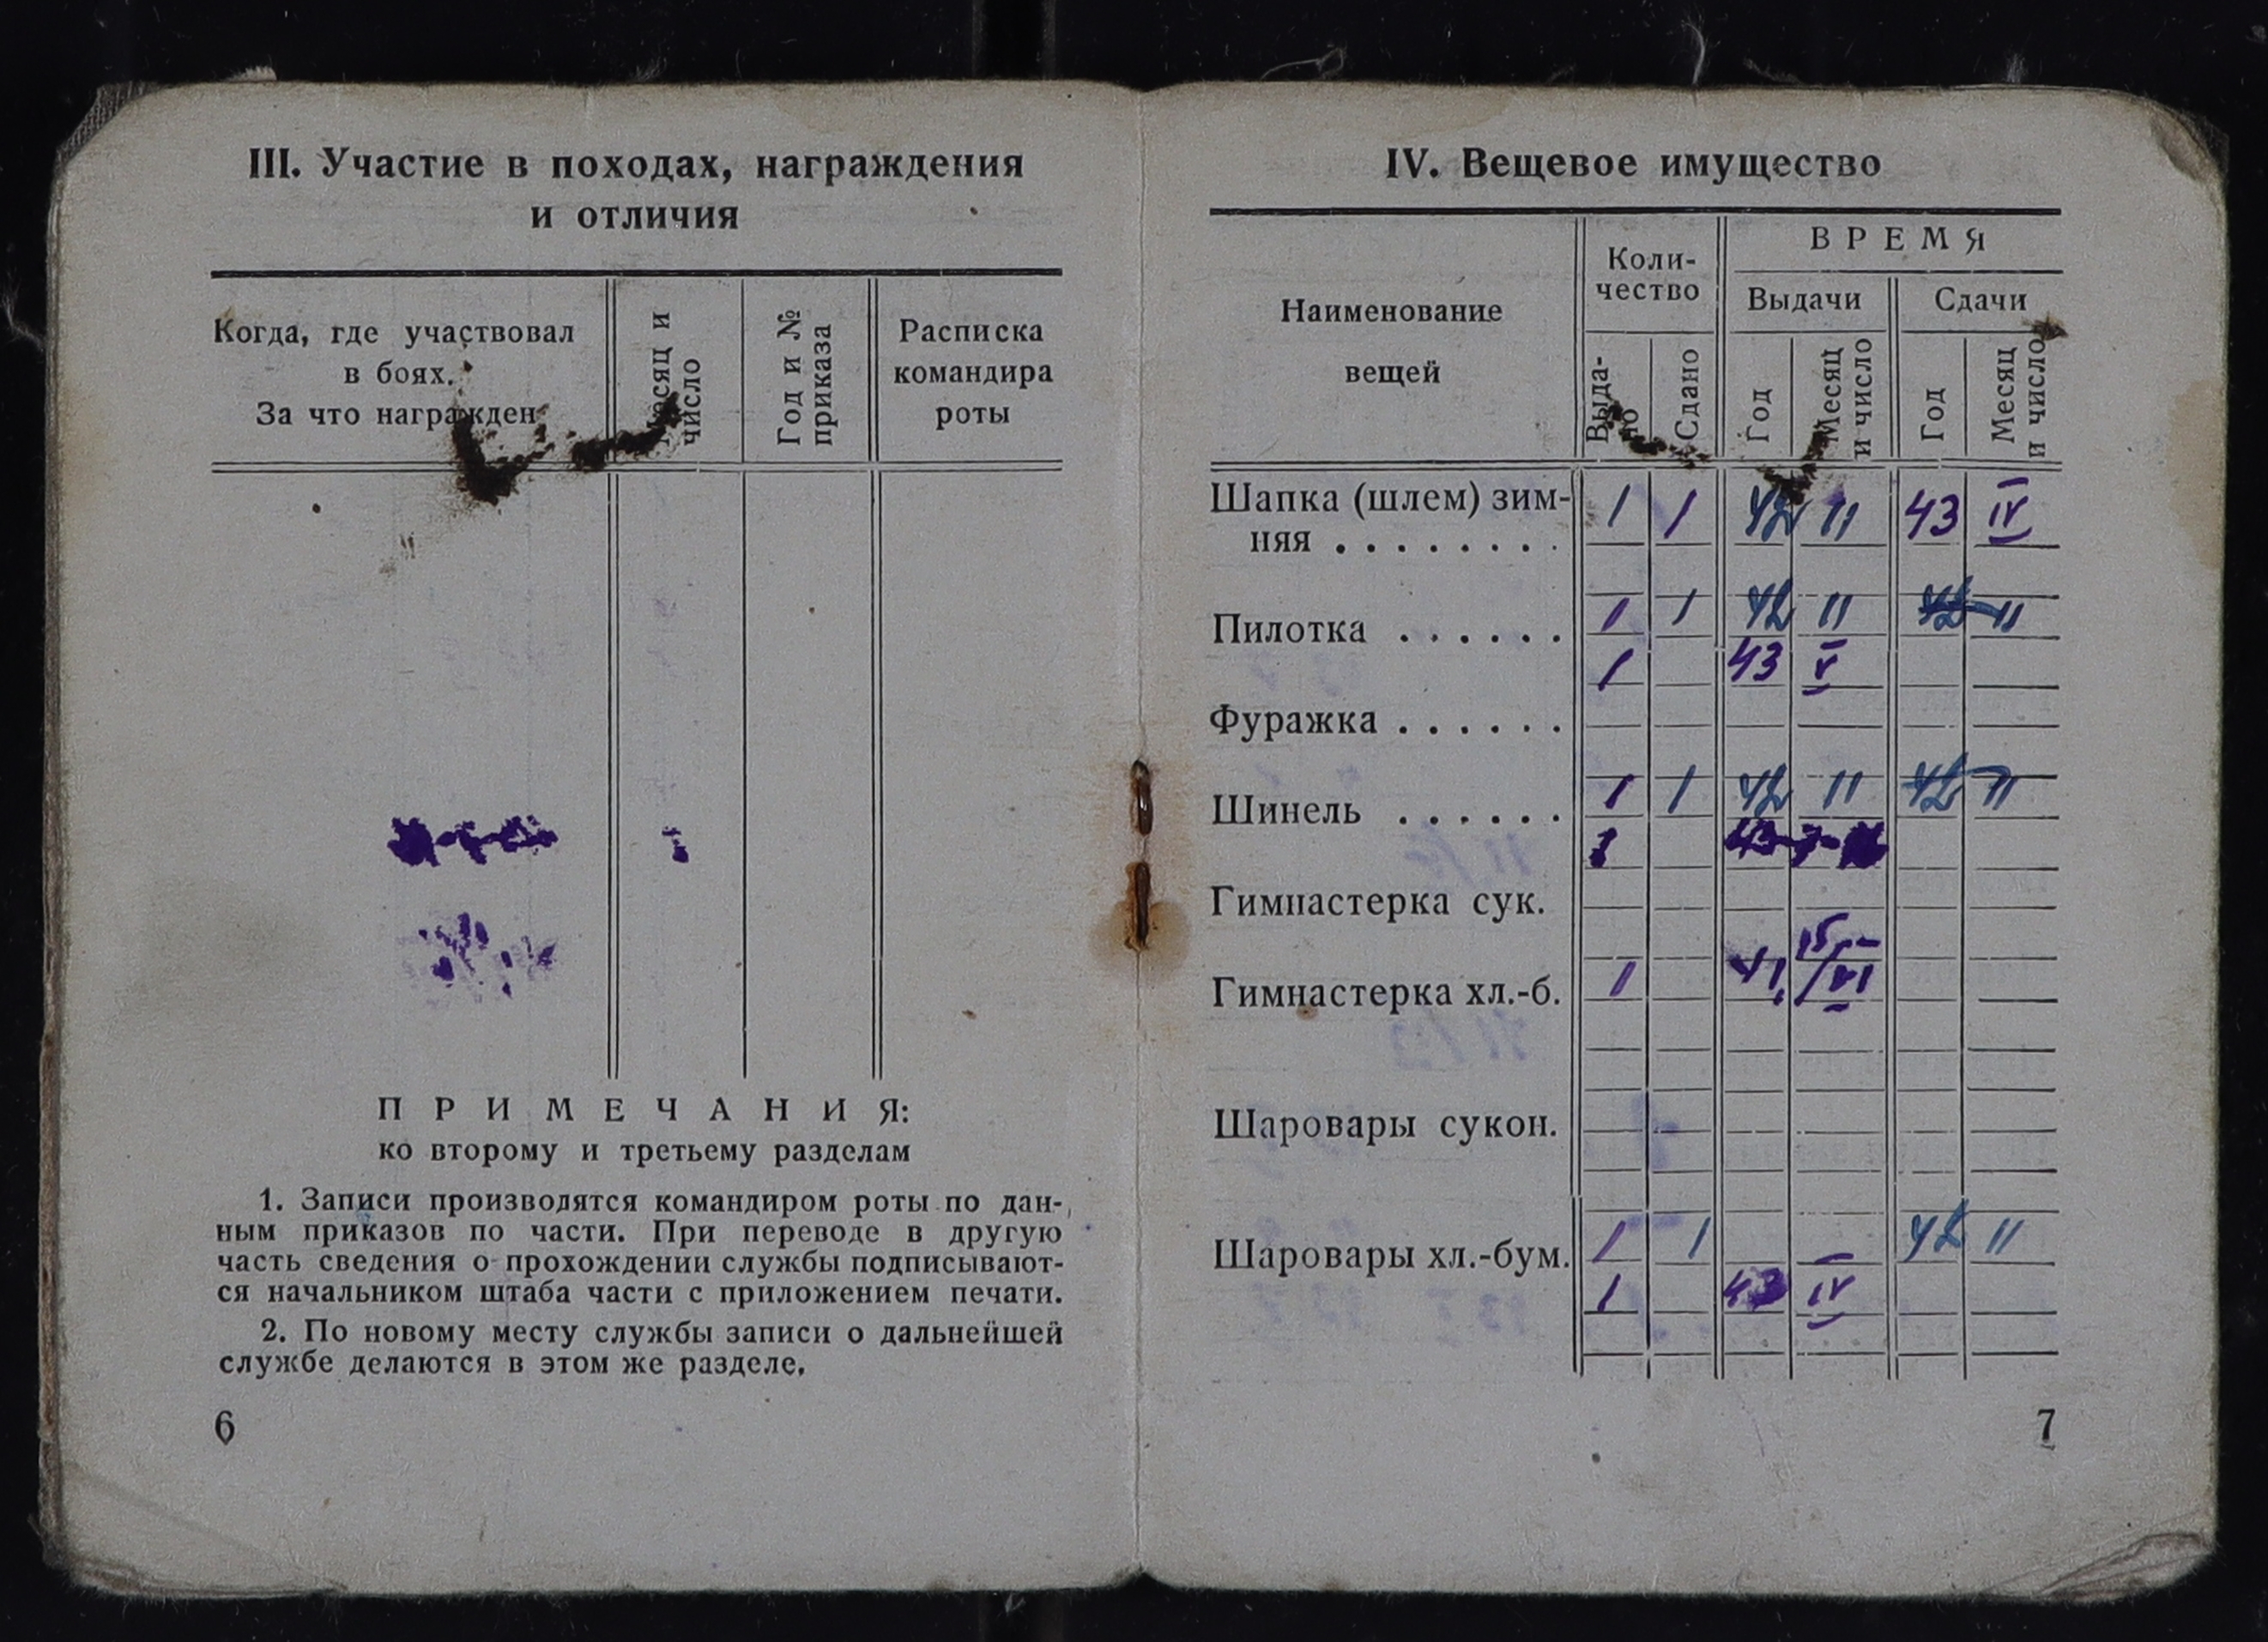 III. Участие в походах, награждения
и отличия
Когда, где участвовал
в боях.
За что награжден
Месяц и
число
Год и №
приказа
Расписка
командира
роты
П Р И М Е Ч А Н И Я:
ко второму и третьему разделам
1. Записи производятся командиром роты по дан-
ным приказов по части. При переводе в другую
часть сведения о прохождении службы подписывают-
ся начальником штаба части с приложением печати.
2. По новому месту службы записи о дальнейшей
службе делаются в этом же разделе.
6
IV. Вещевое имущество
Наименование
вещей
Коли-
чество
В Р Е М Я
Выдачи
Сдачи
Выда-
но
Сдано
Год
Месяц
и число
Год
Месяц
и число
Шапка (шлем) зим-
няя . . . . . . . . 1 1 42 11 43 IV
Пилотка . . . . . . 1 1 42 11 42 11
1 43 V
Фуражка . . . . . .
Шинель . . . . . . 1 1 42 11 42 11
1 43
Гимнастерка сук.
Гимнастерка хл.-б. 1 41 15/VI
Шаровары сукон.
Шаровары хл.-бум. 1 1 42 11
1 43 IV
7